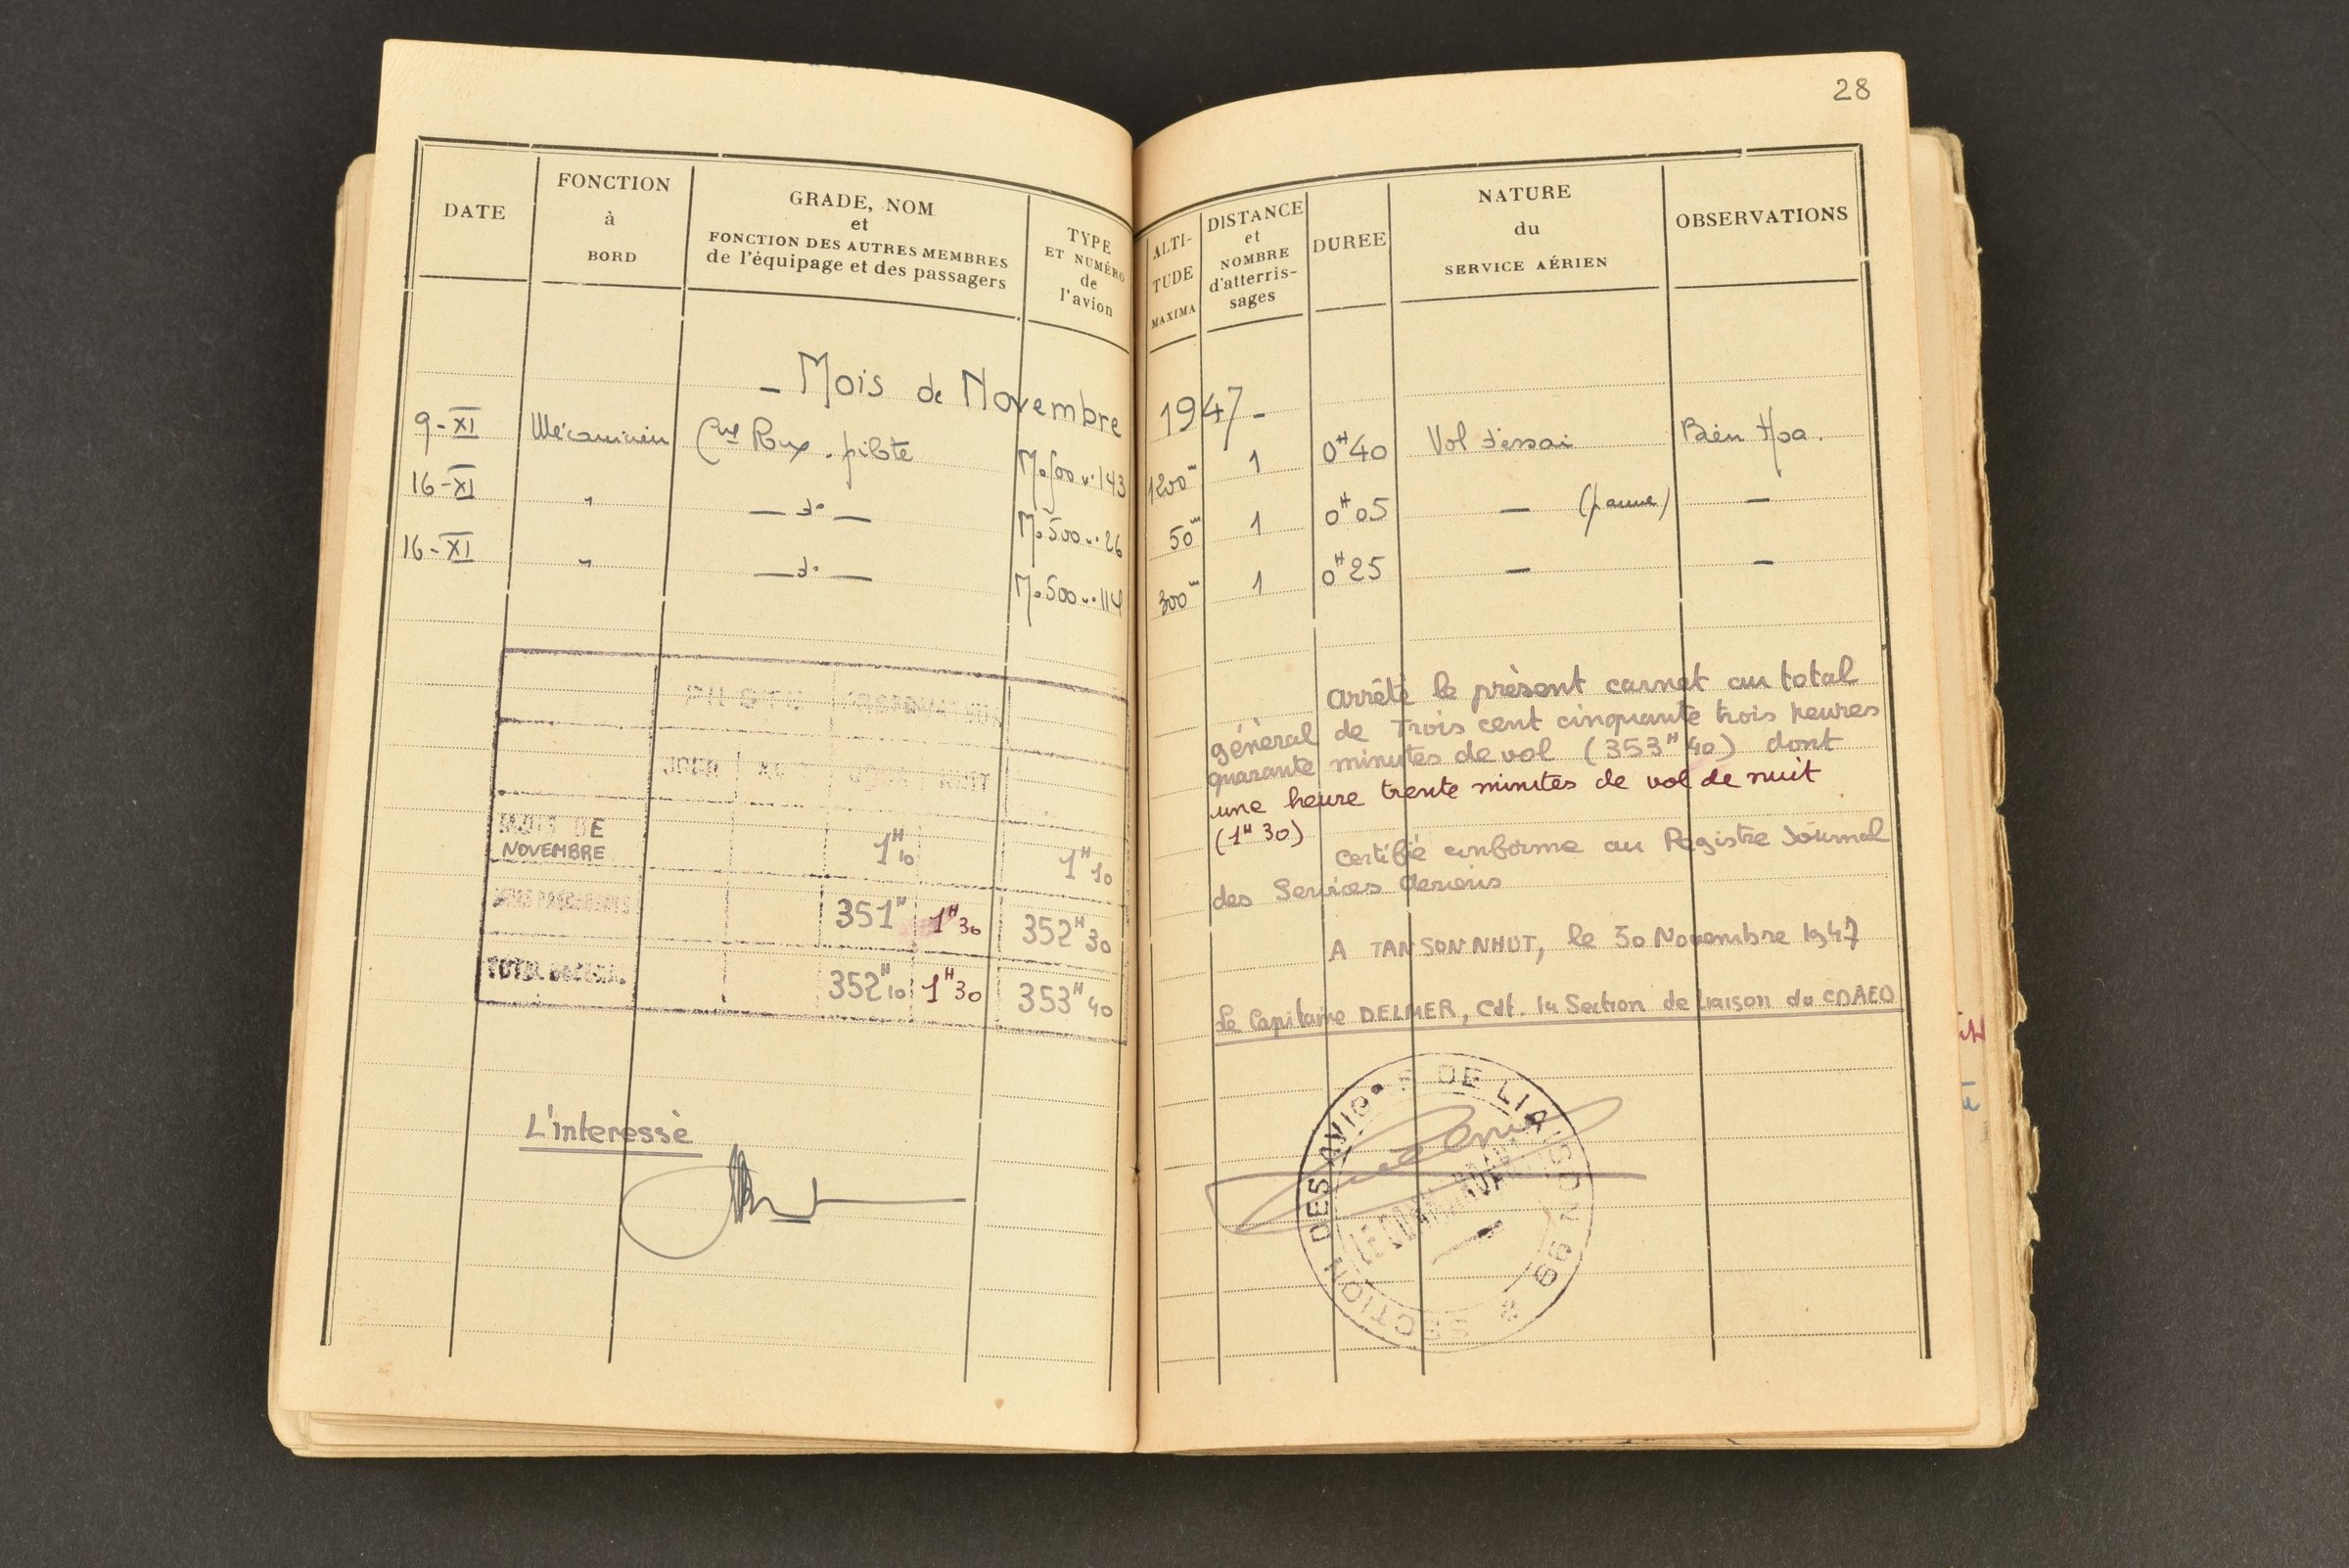 28
DATE
FONCTION
à
BORD
GRADE, NOM
et
FONCTION DES AUTRES MEMBRES
de l'équipage et des passagers
TYPE
ET NUMÉRO
de
l'avion
ALTI-
TUDE
MAXIMA
DISTANCE
et
NOMBRE
d'atterris-
sages
DUREE
NATURE
du
SERVICE AÉRIEN
OBSERVATIONS
- Mois de Novembre 1947 -
9-XI Mécanicien Cne Roux. pilote Mo.500 n.143 1200m 1 0H40 Vol d'essai Bièn Hoa.
16-XI " — do — Mo.500 n.26 50m 1 0H05 — (panne) —
16-XI " — do — Mo.500 n.114 300m 1 0H25 — —
PILOTE
JOUR NUIT JOUR NUIT
MOIS DE
NOVEMBRE 1H10 1H10
MOIS PRÉCÉDENTS 351H 1H30 352H30
TOTAL GÉNÉRAL 352H10 1H30 353H40
L'interessè
Arrêté le prèsent carnet au total
géneral de Trois cent cinquante trois heures
quarante minutes de vol (353H40) dont
une heure trente minutes de vol de nuit
(1H30)
Certifié conforme au Registre Journal
des Services Aeriens
A TAN SON NHUT, le 30 Novembre 1947
Le Capitaine DELMER, Cdt. la Section de Liaison du CDAEO
SECTION DES AVIONS DE LIAISON 99